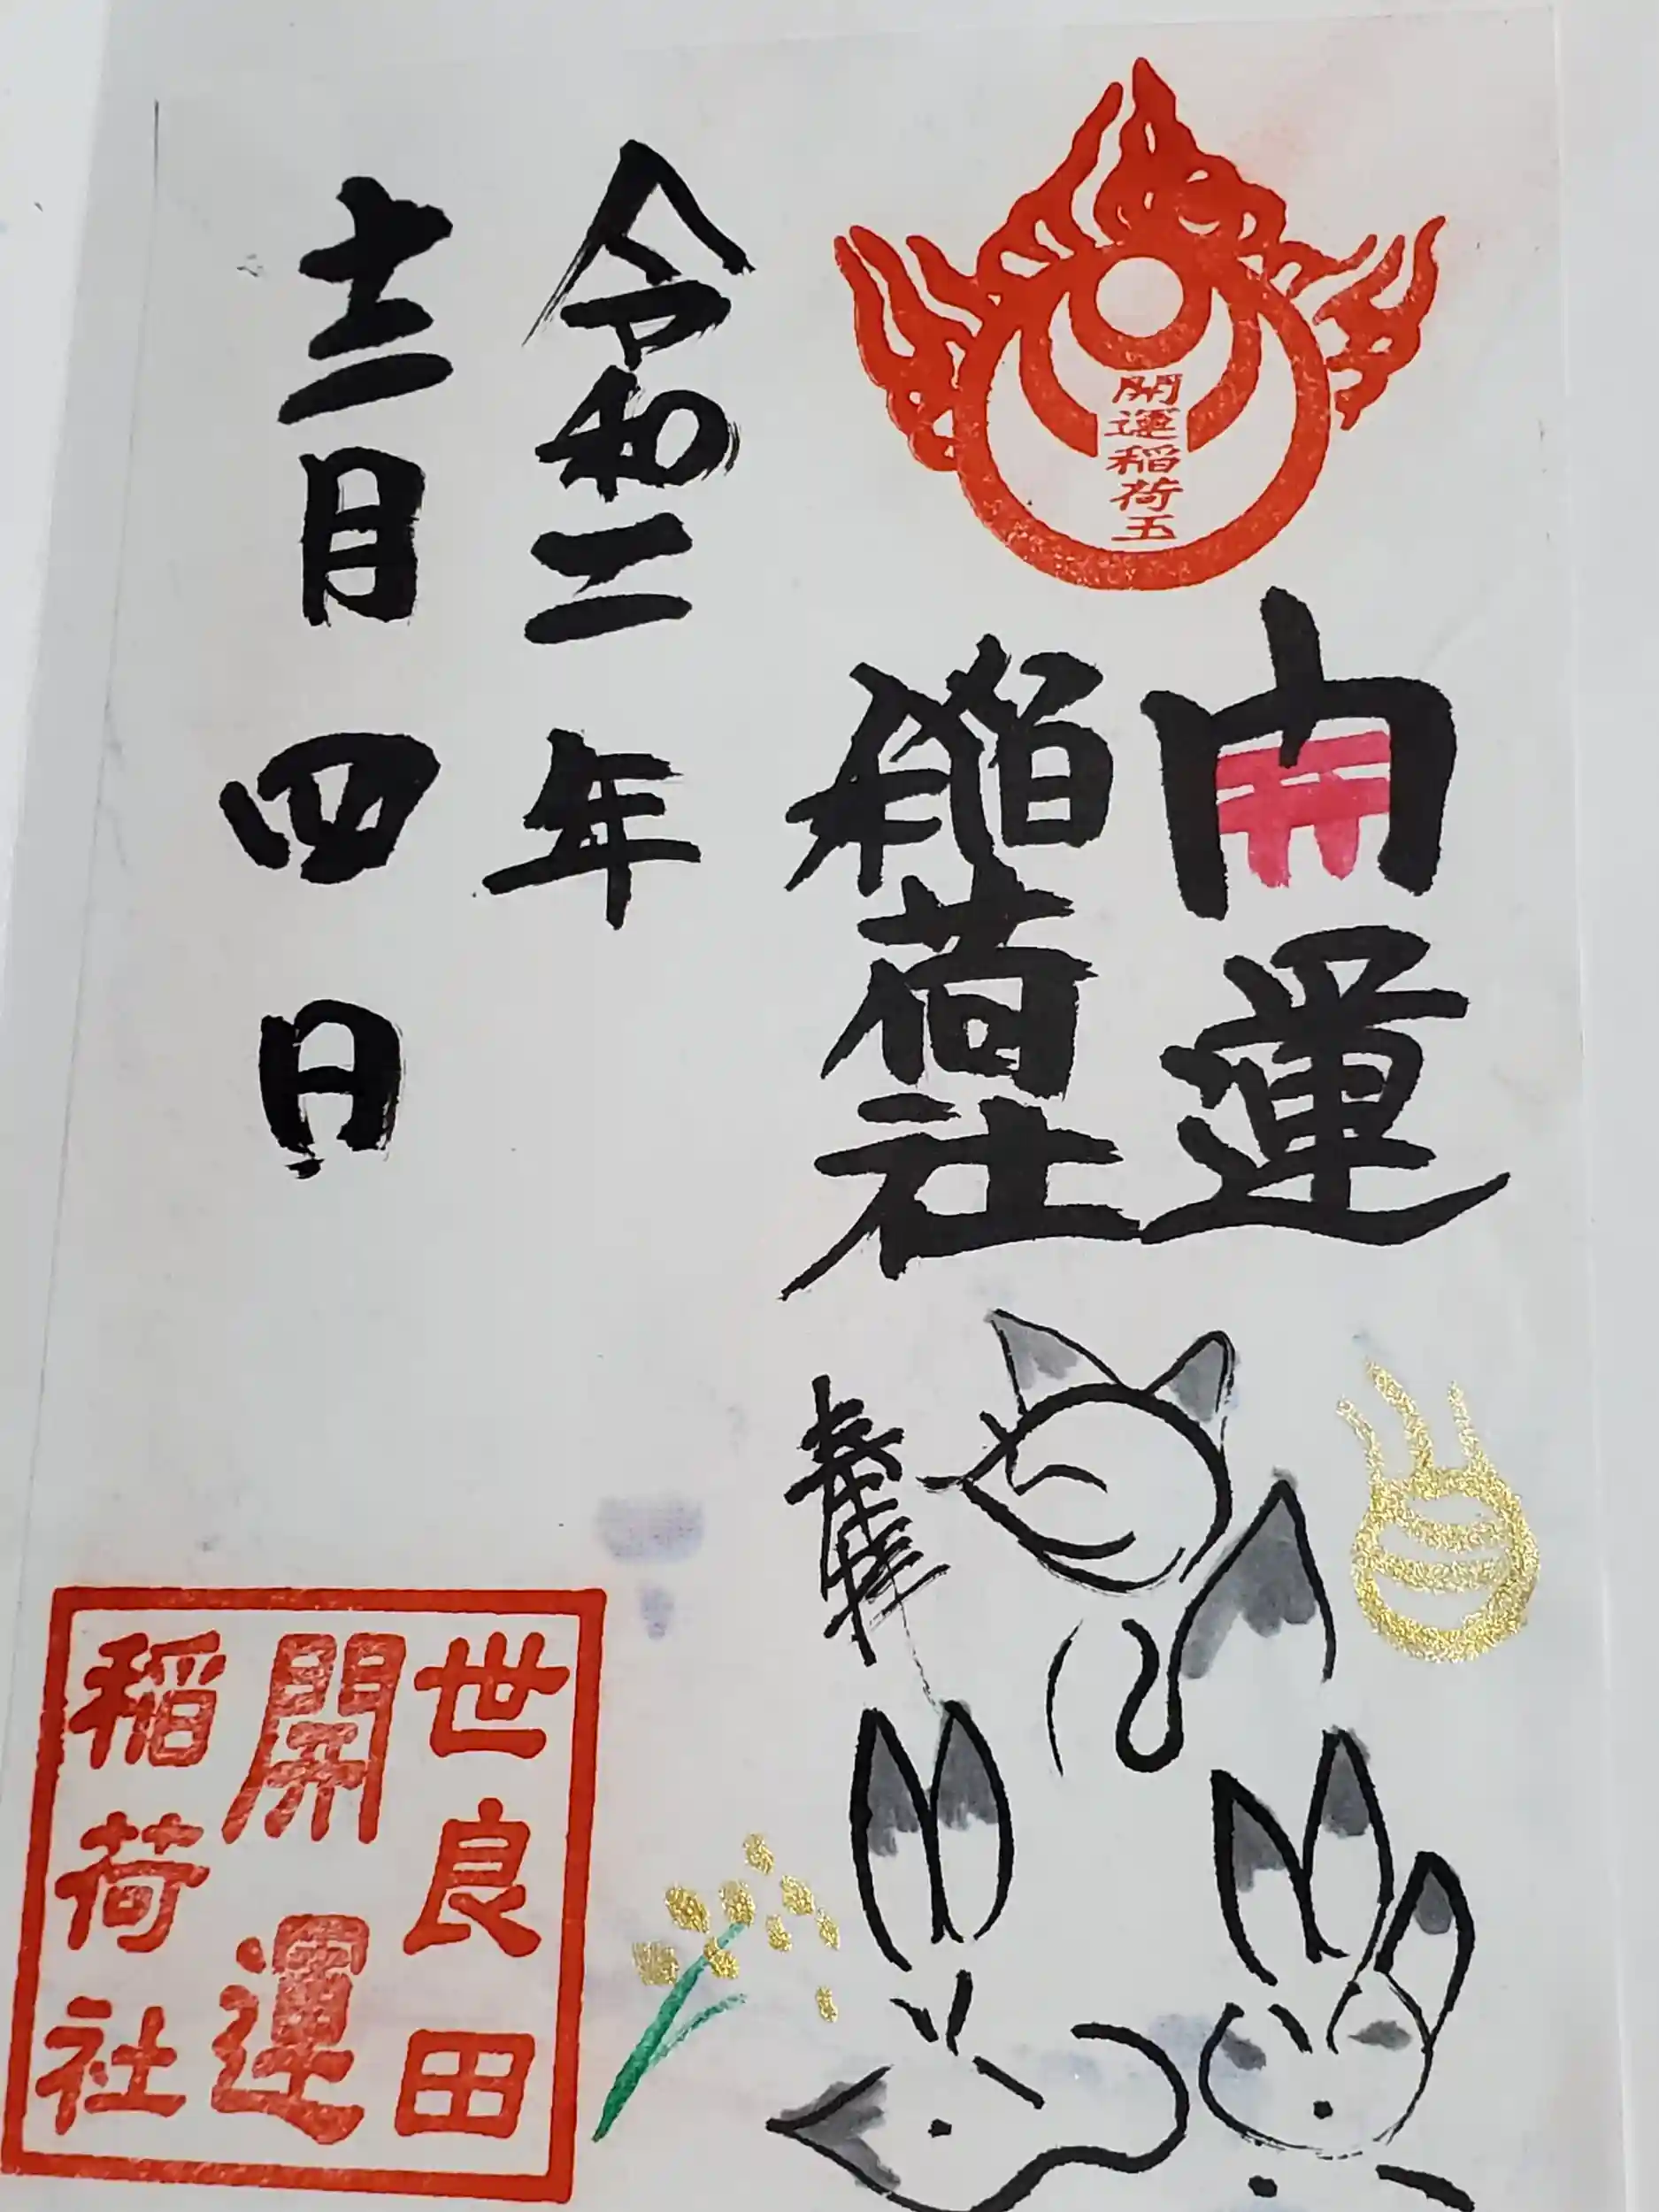 開運稲荷
開運
稲荷社
奉拝
令和二年
十二月四日
世良田
開運
稲荷社